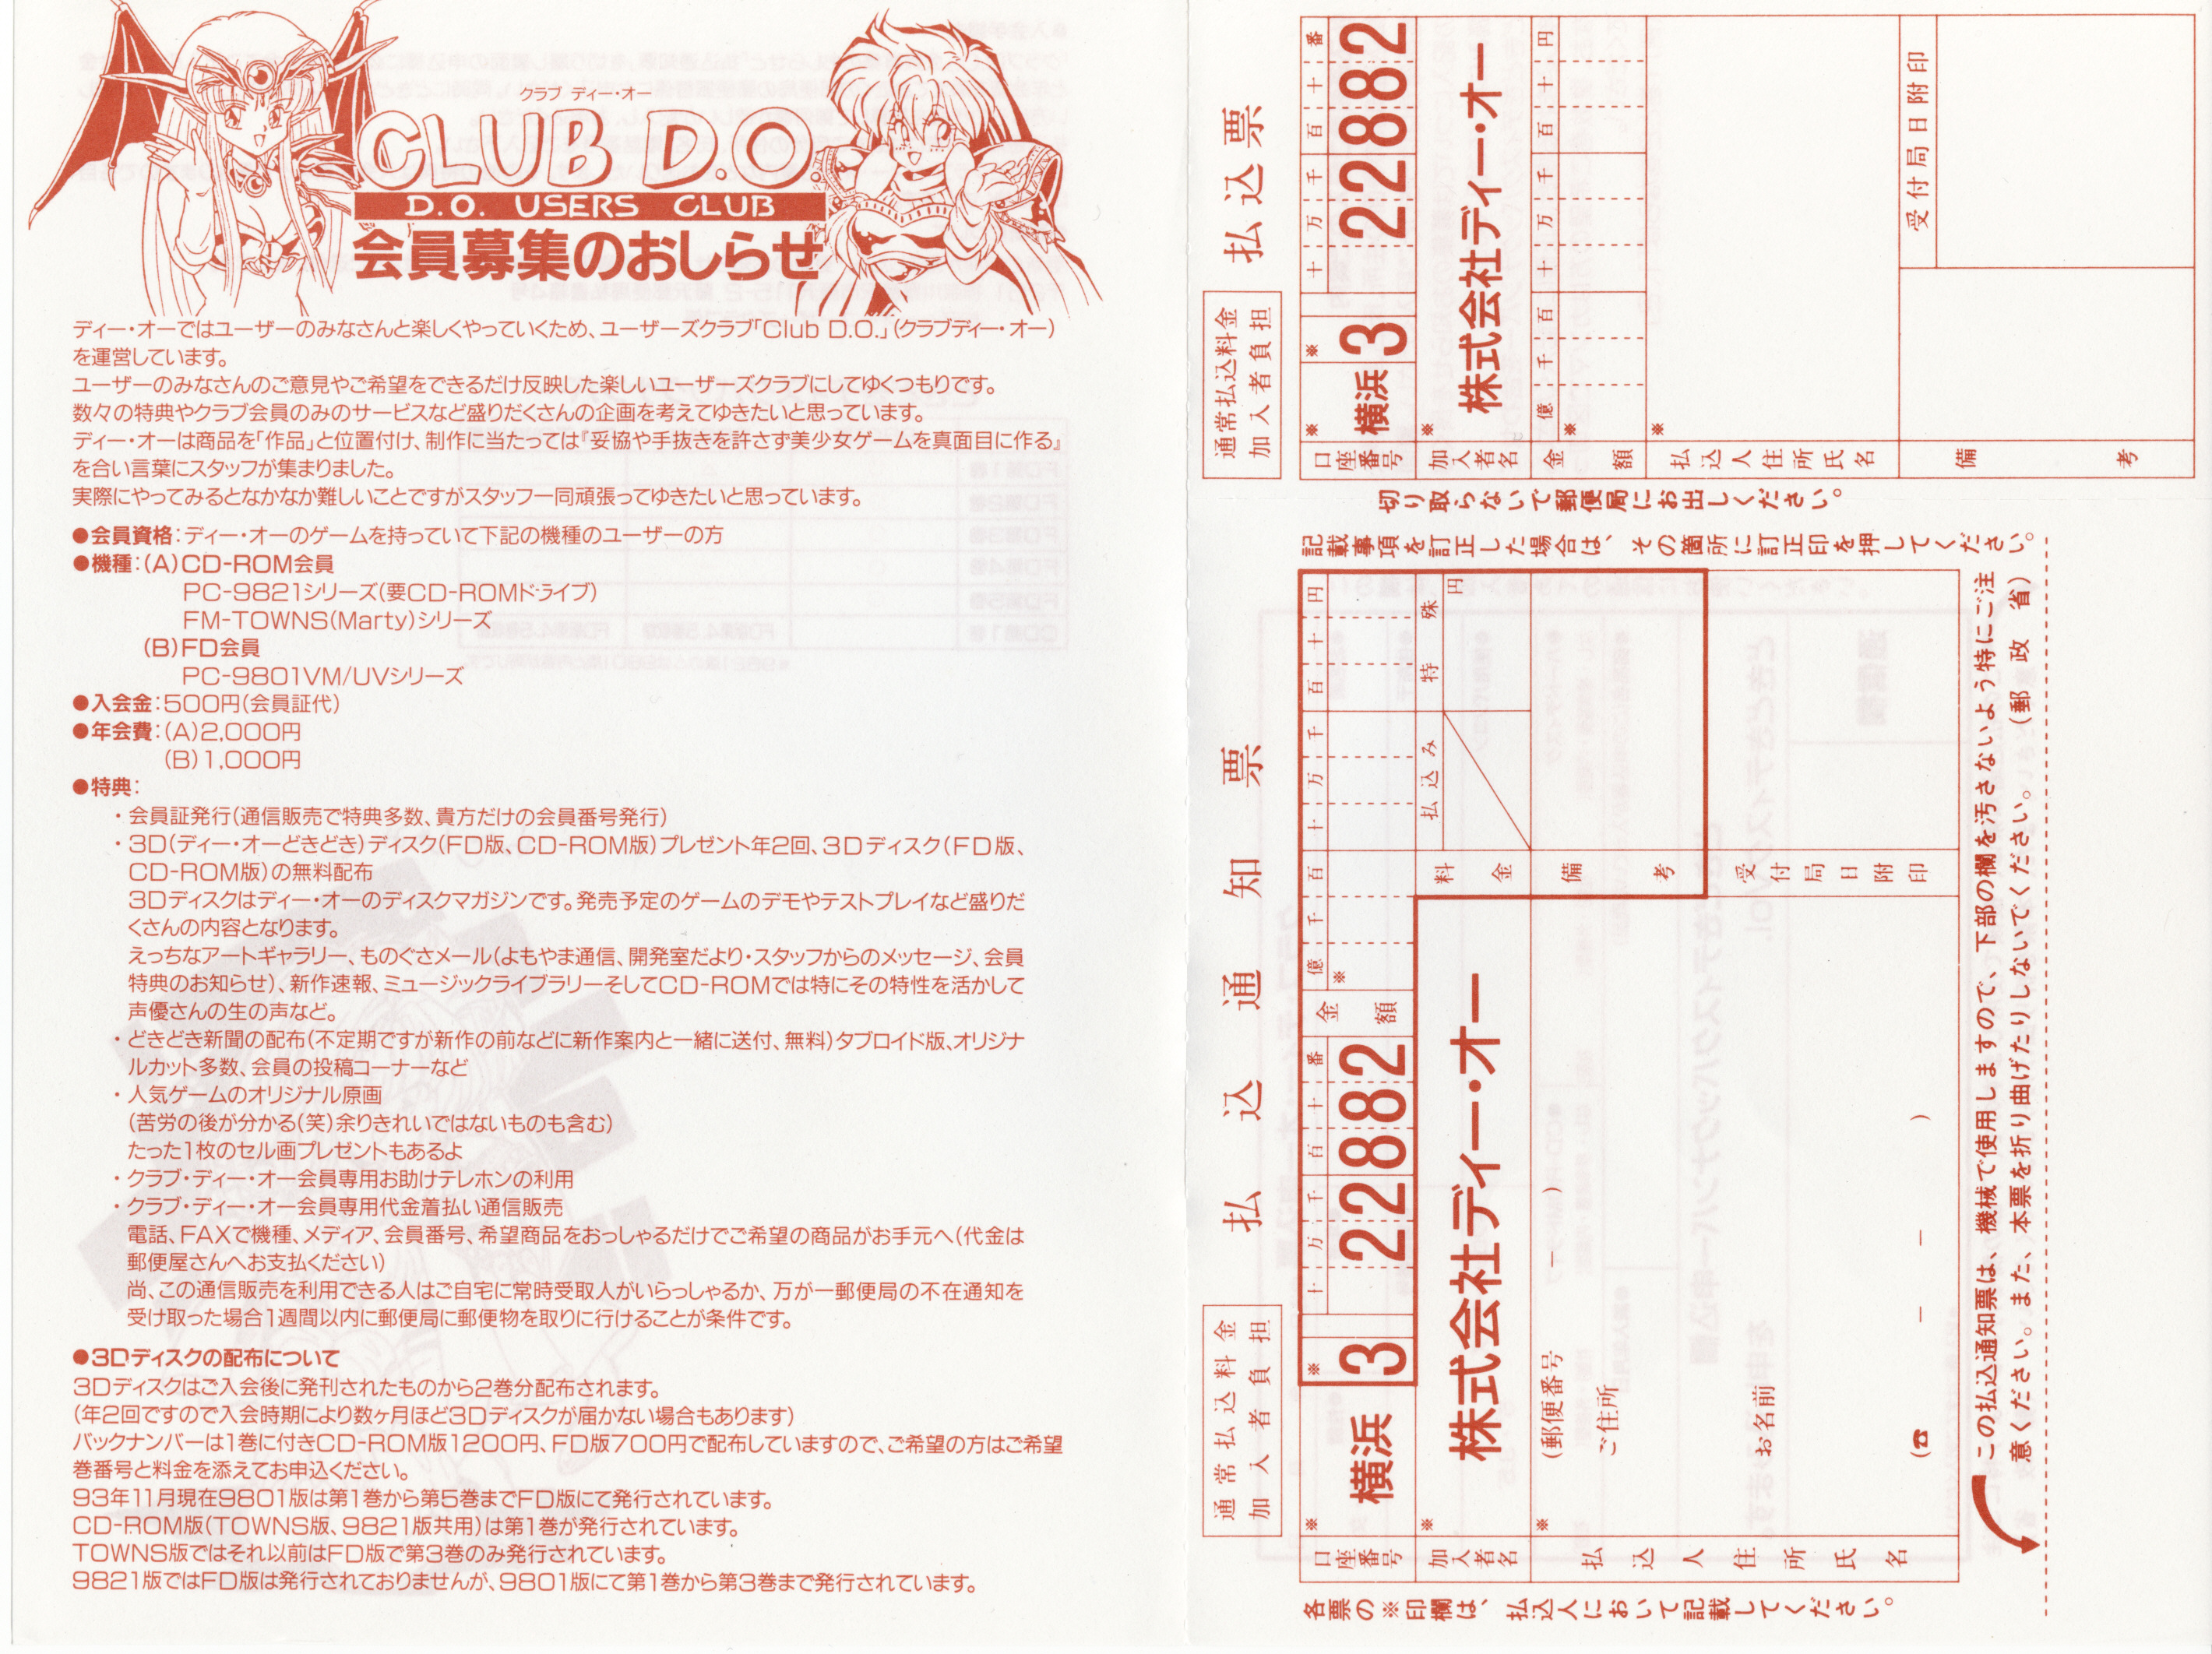 クラブ ディー・オー
CLUB D.O.
D.O. USERS CLUB
会員募集のおしらせ
ディー・オーではユーザーのみなさんと楽しくやっていくため、ユーザーズクラブ「Club D.O.」(クラブディー・オー)
を運営しています。
ユーザーのみなさんのご意見やご希望をできるだけ反映した楽しいユーザーズクラブにしてゆくつもりです。
数々の特典やクラブ会員のみのサービスなど盛りだくさんの企画を考えてゆきたいと思っています。
ディー・オーは商品を「作品」と位置付け、制作に当たっては『妥協や手抜きを許さず美少女ゲームを真面目に作る』
を合い言葉にスタッフが集まりました。
実際にやってみるとなかなか難しいことですがスタッフ一同頑張ってゆきたいと思っています。
●会員資格:ディー・オーのゲームを持っていて下記の機種のユーザーの方
●機種:(A)CD-ROM会員
PC-9821シリーズ(要CD-ROMドライブ)
FM-TOWNS(Marty)シリーズ
(B)FD会員
PC-9801VM/UVシリーズ
●入会金:500円(会員証代)
●年会費:(A)2,000円
(B)1,000円
●特典:
・会員証発行(通信販売で特典多数、貴方だけの会員番号発行)
・3D(ディー・オーどきどき)ディスク(FD版、CD-ROM版)プレゼント年2回、3Dディスク(FD版、
CD-ROM版)の無料配布
3Dディスクはディー・オーのディスクマガジンです。発売予定のゲームのデモやテストプレイなど盛りだ
くさんの内容となります。
えっちなアートギャラリー、ものぐさメール(よもやま通信、開発室だより・スタッフからのメッセージ、会員
特典のお知らせ)、新作速報、ミュージックライブラリーそしてCD-ROMでは特にその特性を活かして
声優さんの生の声など。
・どきどき新聞の配布(不定期ですが新作の前などに新作案内と一緒に送付、無料)タブロイド版、オリジナ
ルカット多数、会員の投稿コーナーなど
・人気ゲームのオリジナル原画
(苦労の後が分かる(笑)余りきれいではないものも含む)
たった1枚のセル画プレゼントもあるよ
・クラブ・ディー・オー会員専用お助けテレホンの利用
・クラブ・ディー・オー会員専用代金着払い通信販売
電話、FAXで機種、メディア、会員番号、希望商品をおっしゃるだけでご希望の商品がお手元へ(代金は
郵便屋さんへお支払ください)
尚、この通信販売を利用できる人はご自宅に常時受取人がいらっしゃるか、万が一郵便局の不在通知を
受け取った場合1週間以内に郵便局に郵便物を取りに行けることが条件です。
●3Dディスクの配布について
3Dディスクはご入会後に発刊されたものから2巻分配布されます。
(年2回ですので入会時期により数ヶ月ほど3Dディスクが届かない場合もあります)
バックナンバーは1巻に付きCD-ROM版1200円、FD版700円で配布していますので、ご希望の方はご希望
巻番号と料金を添えてお申込ください。
93年11月現在9801版は第1巻から第5巻までFD版にて発行されています。
CD-ROM版(TOWNS版、9821版共用)は第1巻が発行されています。
TOWNS版ではそれ以前はFD版で第3巻のみ発行されています。
9821版ではFD版は発行されておりませんが、9801版にて第1巻から第3巻まで発行されています。
払込票
通常払込料金
加入者負担
口座番号
※
横浜
※
3
十万千百十番
22882
加入者名
※
株式会社ディー・オー
金額
億千百十万千百十円
※
払込人住所氏名
※
備考
受付局日附印
切り取らないで郵便局にお出しください。
記載事項を訂正した場合は、その箇所に訂正印を押してください。
払込通知票
通常払込料金
加入者負担
口座番号
※
横浜
※
3
十万千百十番
22882
金額
億千百十万千百十円
※
加入者名
※
株式会社ディー・オー
料金
払込み
特殊
円
備考
払込人住所氏名
※
(郵便番号 − )
ご住所
お名前
(☎ − − )
受付局日附印
この払込通知票は、機械で使用しますので、下部の欄を汚さないよう特にご注
意ください。また、本票を折り曲げたりしないでください。(郵政省)
各票の※印欄は、払込人において記載してください。